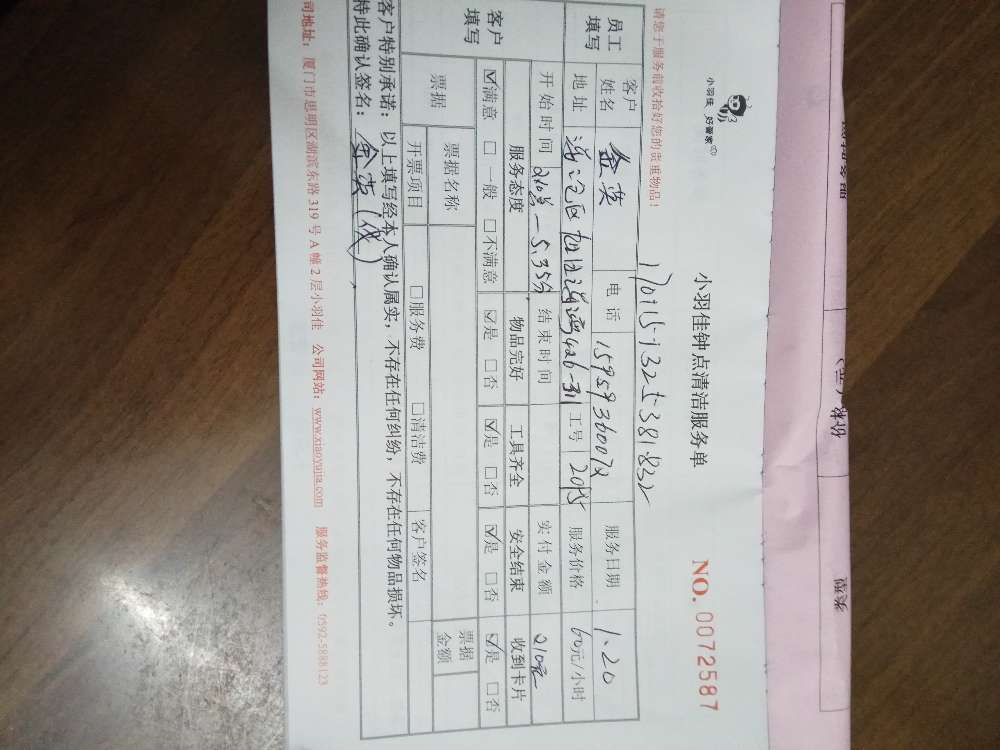 小羽佳 好管家
小羽佳钟点清洁服务单
NO. 0072587
请您于服务前收拾好您的贵重物品!
员工填写
客户姓名 金英 电话 服务日期 1.20
地址 工号 服务价格 60元/小时
开始时间 结束时间 实付金额 210元
客户填写
服务态度 物品完好 工具齐全 安全结束 收到卡片
☑满意 □一般 □不满意 ☑是 □否 ☑是 □否 ☑是 □否 ☑是 □否
票据 票据名称 票据金额
开票项目 □服务费 □清洁费 客户签名
客户特别承诺:以上填写经本人确认属实,不存在任何纠纷,不存在任何物品损坏。
特此确认签名:金英
司地址:厦门市思明区湖滨东路 319 号 A 幢 2 层小羽佳 公司网站:www.xiaoyujia.com 服务监督热线:0592-5888123